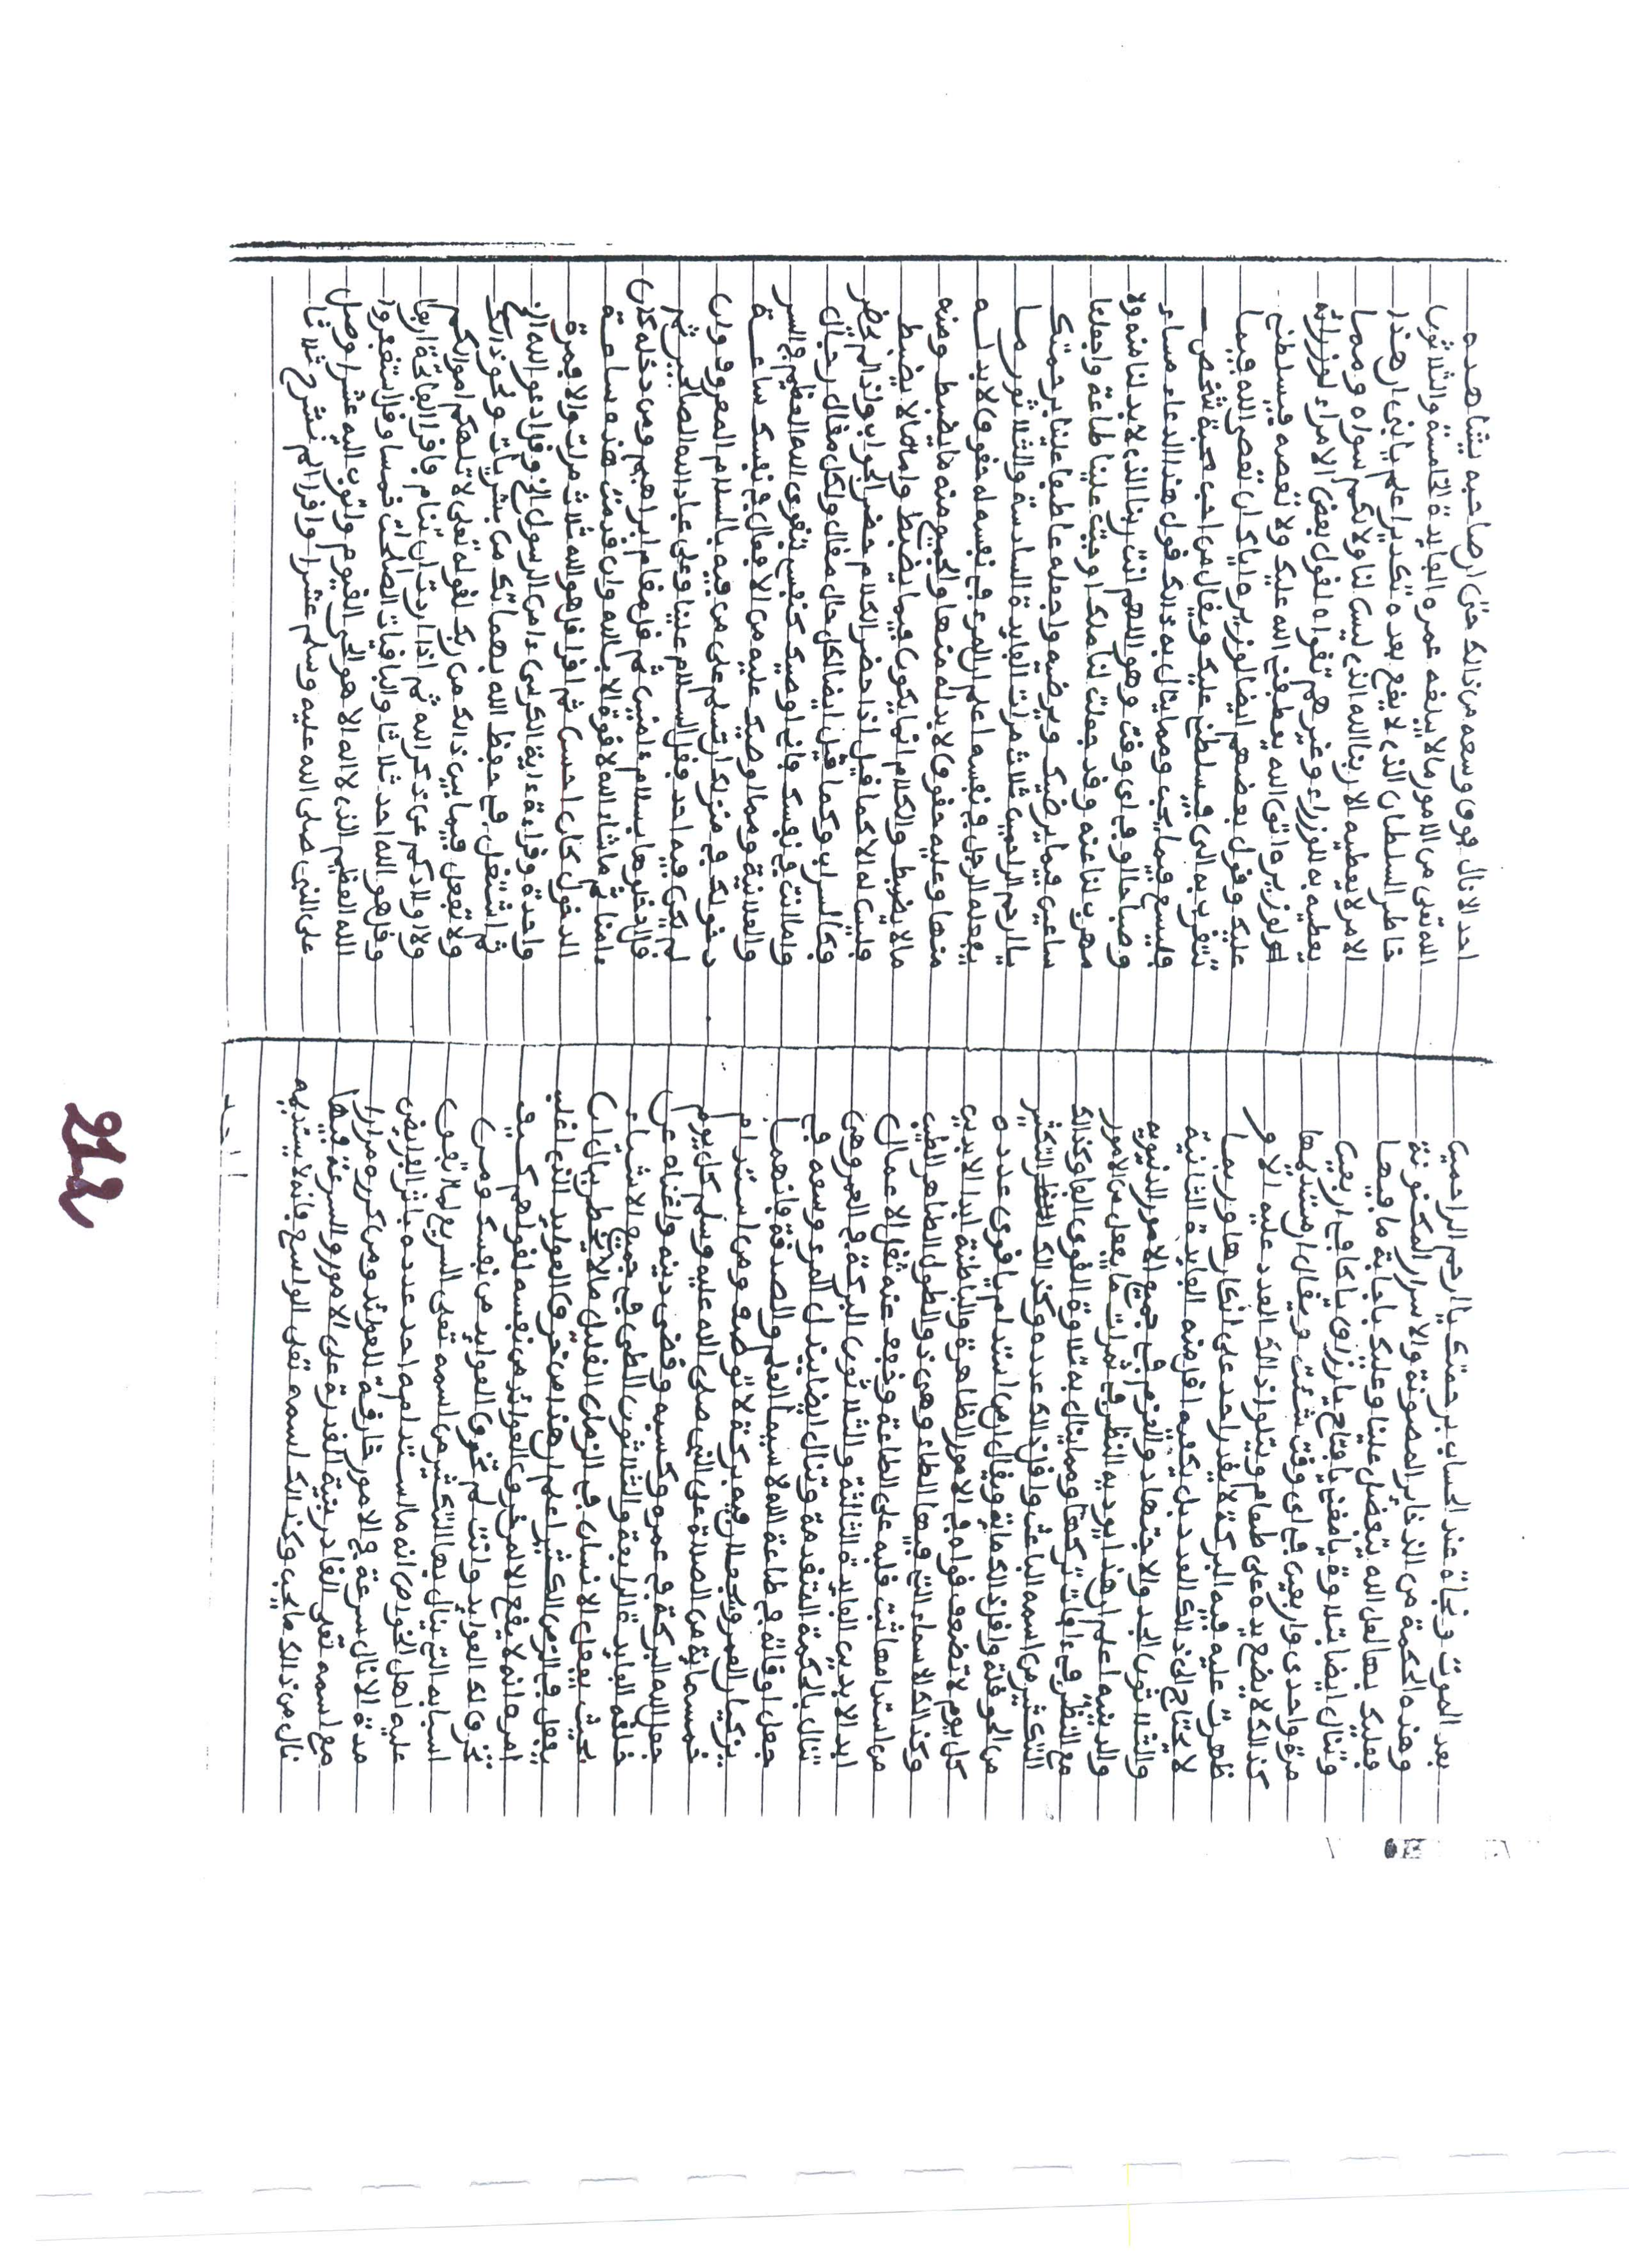 بعد الموت ونجاة عند الحساب برحمتك يا ارحم الراحمين
وهذه الحكمة من الذخاير المصونة والاسرار المكنونة
فعليك بها لعل الله يتفضل علينا وعليك باجابة ما فيها
وتنال ايضا بتلاوة يا مغني يا فتاح يا رزاق يا كافي اربعين
مرة واحدى واربعين في اي وقت شئت ويقال ان مستديمها
كذالك لا يضع يده على طعام ويتلوا ذالك العدد عليه الا و
ظهرت عليه فيه البركة لا يقدر احد على انكارها وربما
لا يحتاج الى ذالك العدد بل يكفيه افل منه الفايدة الثانية
والثلاثون الجد والاجتهاد والعزم في جميع الامور الدنيوية
والدينية اعلم ان هذا يورد به النظر في ثمرات ما يفعل من الامور
مع النظر في ءافات تركها ومما ينال به تلاوة القوي الفا وكذالك
التكثير من اسمه الباعث وافل ذالك عدده وكذالك التكثير
من الحوقلة وافل ذالك ماية ويقال ان من استدام يا قوي عدده
كل يوم لا تضعف قواه في الامور الظاهرة والباطنة ابد الابدين
وكذالك الاسماء التي فيها الطاء وهي ذو الطول الطاهر الطيب
من استدامها ثبت قلبه على الطاعة وخفف عنه ثقل الاعمال
ابد الابدين الفايدة الثالثة والثلاثون البركة في العمر وهي
تنال بالحكمة المتقدمة وتنال ايضا ببذل المرء وسعه في
جعل اوقاته في طاعة الله لا سيما العلم والصدقة فانهما
يزيدان العمر ويجعلان فيه بركة لا توصف ومن استدام
خمسماية من الصلاة على النبي صلى الله عليه وسلم كل يوم
جعل الله البركة في عمره وكسبه وقضى دينه واغناه عن
خلقه الفايدة الرابعة والثلاثون الطي في جميع الاشياء
بحيث يفعل الانسان في الزمان القليل ما لا يخطر ببال ان
يفعل في الزمن الكثير اعلم ان هذا من خرق العوايد الذي اغلب
امره انه لا يقع الا لمن خرق العوائد من نفسه لقولهم كيف
تخرق لك العوايد وانت لم تخرق العوايد من نفسك ومن
اسبابه التي ينال بها التكثير من اسمه تعلى السريع لما اتفق
عليه اهل الخواص انه ما استدامه احد عدده باثر الفرايض
مدة الا نال سرعة في الامور خارقة للعوائد ومن كرره مرارا
مع اسمه تعلى القادر بنية القدرة على الامور والسرعة فيها
نال من ذالك ما يحب وكذالك اسمه تعلى الواسع فانه لا يستديمه
احد الا نال قوى وسعه من ذالك حتى ان صاحبه يشاهده
الله تعلى من الامور ما لا يبلغه عمره الفايدة الخامسة والثلاثون
خاطر السلطان الذي لا يقع بعده تكدير اعلم يا اخي ان هذا
الامر لا يعطيه الا ربنا الله الذي ليس لنا ولا لكم سواه ومما
يعطيه به للوزراء وغيرهم تقواه لقول بعض الامراء لوزرائه
لوزيره واتق الله يعطفني الله عليك ولا تعصه فيسلطني
عليك وقول بعضهم ايضا لوزيره اياك ان تعصي الله فيما
تتقرب به الي فيسلطني عليك ويقال من احب صحبة شخص
فليسع فيما يحب ومما ينال به ذالك قول هذا الدعاء مساء
وصباحا او في اي وقت وهو اللهم انت ربنا الذي لا بد لنا منه ولا
مهرب لنا عنه وقد جعلت لنا ملكا اوجبت علينا طاعة واجعلنا
ساعين فيما يرضيك ويرضيه واجعله عاطفا علينا برحمتك
يا ارحم الراحمين ثلاث مرات الفايدة السادسة والثلاثون ما
يفعله الرجل في نفسه اعلم ان المرء في نفسه له حقوق لا بد له
منها وعليه حقوق لا بد له منها والجميع منه ما يضبط ومنه
ما لا يضبط والكلام انما يكون فيما يضبط واما ما لا يضبط
فليس له الا كما قيل اذا حضر الكلام حضر الجواب واذا لم يحضر
فكالسراب وكما قيل ايضا لكل حال مقال ولكل مقال رجال
واما انت في نفسك فاني اوصيك كنفسي بتقوى الله العظيم في السر
والعلانية ومما اوصيك عليه من الافعال في نفسك ساعة
دخولك في منزلك ان تسلم على من فيه بالسلام المعروف وان
لم يكن فيه احد فقل السلام علينا وعلى عباد الله الصالحين ثم
قل ادخلوها بسلام ءامنين ثم قل مقام ابراهيم ومن دخله كان
ءامنا ثم ما شاء الله لا قوة الا بالله وان قدمت هذه ساعة
الدخول كان احسن ثم اقرا قل هو الله ثلاث مرات والا فمرة
واحدة وقراءة ءاية الكرسي ءامن الرسول الخ وقل ادعوا الله الخ
ثم اشتغل في حفظ الله بمهماتك من بشريات ونحو ذالك
ولا تغفل فيما بين ذالك من ربك لقوله تعلى لا تلهكم اموالكم
ولا اولادكم عن ذكر الله ثم اذا اردت ان تنام فاقرا الفاتحة اربعا
وقل هو الله احد ثلاثا والباقيات الصالحات خمسا وقل استغفروا
الله العظيم الذي لا اله الا هو الحي القيوم واتوب اليه عشرا وصل
على النبي صلى الله عليه وسلم عشرا واقرا الم نشرح ثلاثا
212